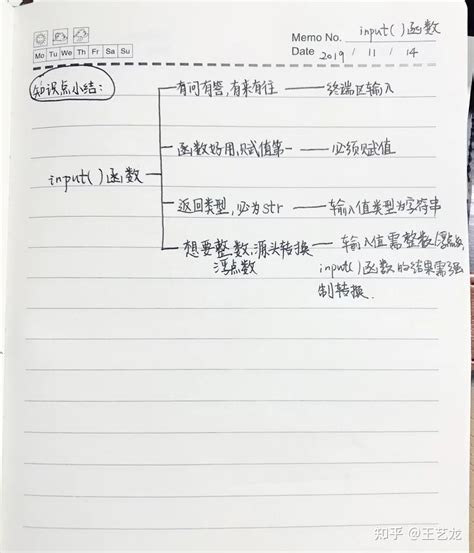 Memo No. input()函数
Mo Tu We Th Fr Sa Su
Date 2019 / 11 / 14
知识点小结:
有问有答,有来有往——终端区输入
函数好用,赋值第一——必须赋值
input()函数
返回类型,必为str——输入值类型为字符串
想要整数,源头转换——输入值需整数/浮点数
浮点数
input()函数的结果需强
制转换.
知乎 @王艺龙